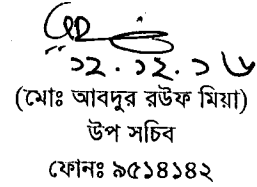 ১২.১২.১৬
(মোঃ আবদুর রউফ মিয়া)
উপ সচিব
ফোনঃ ৯৫১৪১৪২